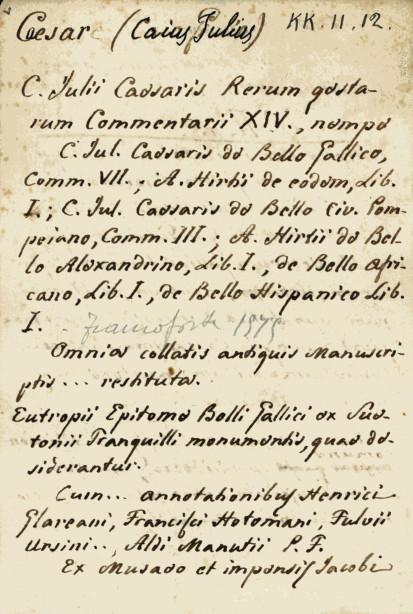 Cesar (Caius Julius) KK. 11. 12.
C. Julii Caesaris Rerum gesta-
rum Commentarii XIV., nempe
C. Jul. Caesaris de Bello Gallico,
Comm. VII.; A. Hirtii de eodem, Lib.
I.; C. Jul. Caesaris de Bello Civ. Pom-
peiano, Comm. III.; A. Hirtii de Bel-
lo Alexandrino, Lib. I., de Bello Afri-
cano, Lib. I., de Bello Hispanico Lib.
I. - Francoforte 1575
Omnia collatis antiquis Manuscri-
ptis... restituta.
Eutropii Epitome Belli Gallici ex Sue-
tonii Tranquilli monumentis, quae de-
siderantur.
Cum... annotationibus Henrici
Glareani, Francisci Hotomani, Fulvii
Ursini.., Aldi Manutii P. F.
Ex Musaeo et impensis Jacobi